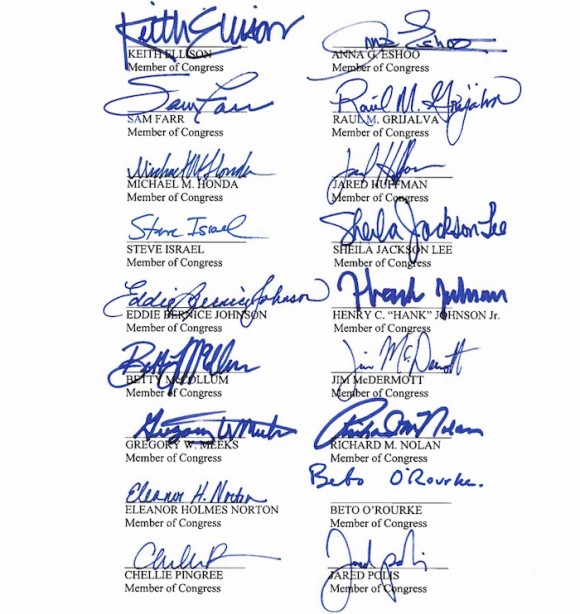 Keith Ellison
KEITH ELLISON
Member of Congress
Anna G. Eshoo
ANNA G. ESHOO
Member of Congress
Sam Farr
SAM FARR
Member of Congress
Raúl M. Grijalva
RAUL M. GRIJALVA
Member of Congress
Michael M. Honda
MICHAEL M. HONDA
Member of Congress
Jared Huffman
JARED HUFFMAN
Member of Congress
Steve Israel
STEVE ISRAEL
Member of Congress
Sheila Jackson Lee
SHEILA JACKSON LEE
Member of Congress
Eddie Bernice Johnson
EDDIE BERNICE JOHNSON
Member of Congress
Hank Johnson
HENRY C. “HANK” JOHNSON Jr.
Member of Congress
Betty McCollum
BETTY McCOLLUM
Member of Congress
Jim McDermott
JIM McDERMOTT
Member of Congress
Gregory W. Meeks
GREGORY W. MEEKS
Member of Congress
Richard M. Nolan
RICHARD M. NOLAN
Member of Congress
Eleanor H. Norton
ELEANOR HOLMES NORTON
Member of Congress
Beto O'Rourke.
BETO O’ROURKE
Member of Congress
CHELLIE PINGREE
Member of Congress
Jared Polis
JARED POLIS
Member of Congress